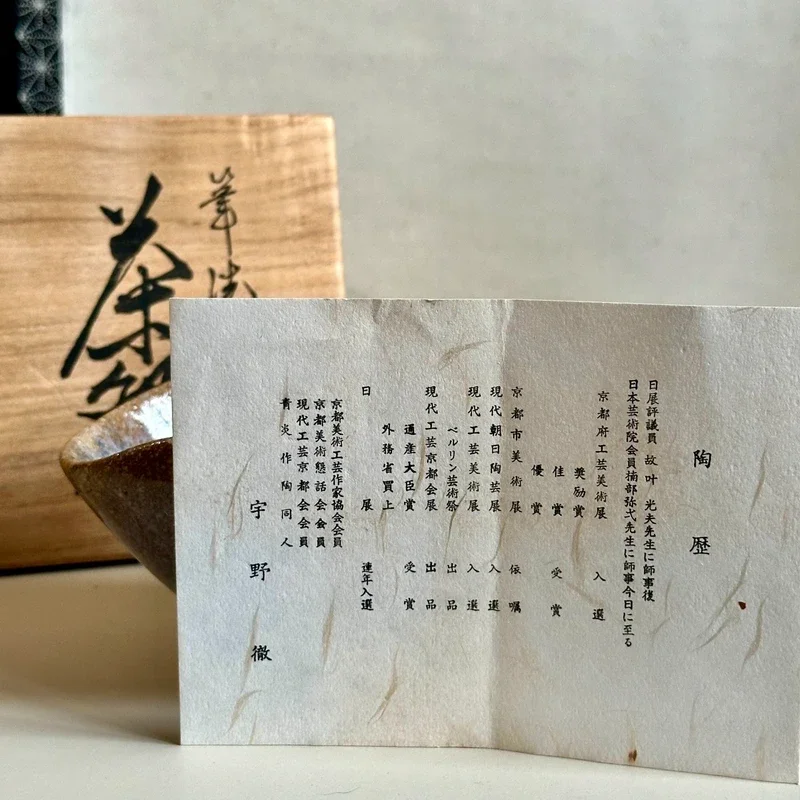 陶歴
日展評議員 故 叶 光夫先生に師事後
日本芸術院会員楠部弥弌先生に師事今日に至る
京都府工芸美術展 入選
奨励賞
佳賞 受賞
優賞
京都市美術展 依嘱
現代朝日陶芸展 入選
現代工芸美術展 入選
ベルリン芸術祭 出品
現代工芸京都会展 出品
通産大臣賞 受賞
外務省買上
日展 連年入選
京都美術工芸作家協会会員
京都美術懇話会会員
現代工芸京都会会員
青炎作陶同人
宇野 徹
茶